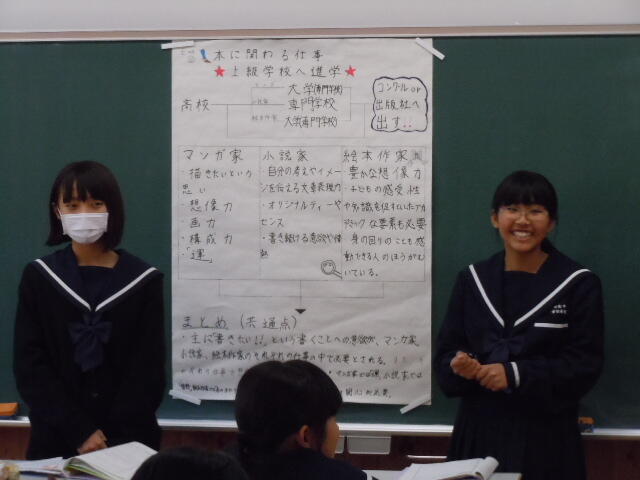 本に関わる仕事
★上級学校へ進学★
高校
大学(専門学校)
専門学校
大学(専門学校)
コンクールor
出版社へ
出す!!
マンガ家
・描きたいという
思い
・想像力
・画力
・構成力
・「運」
小説家
・自分の考えやイメー
ジを伝える文章表現力
・オリジナルティーや
センス
・書き続ける意欲や情
熱
絵本作家
・豊かな想像力
・子どもの感受性
や知識を促すていアカ
デミックな要素も必要
・身の回りのことも感
動できる人のほうがむ
いている。
まとめ(共通点)
・主に「書きたい!!」という書くことへの意欲が、マンガ家、
小説家、絵本作家のそれぞれの仕事の中で必要とされる。